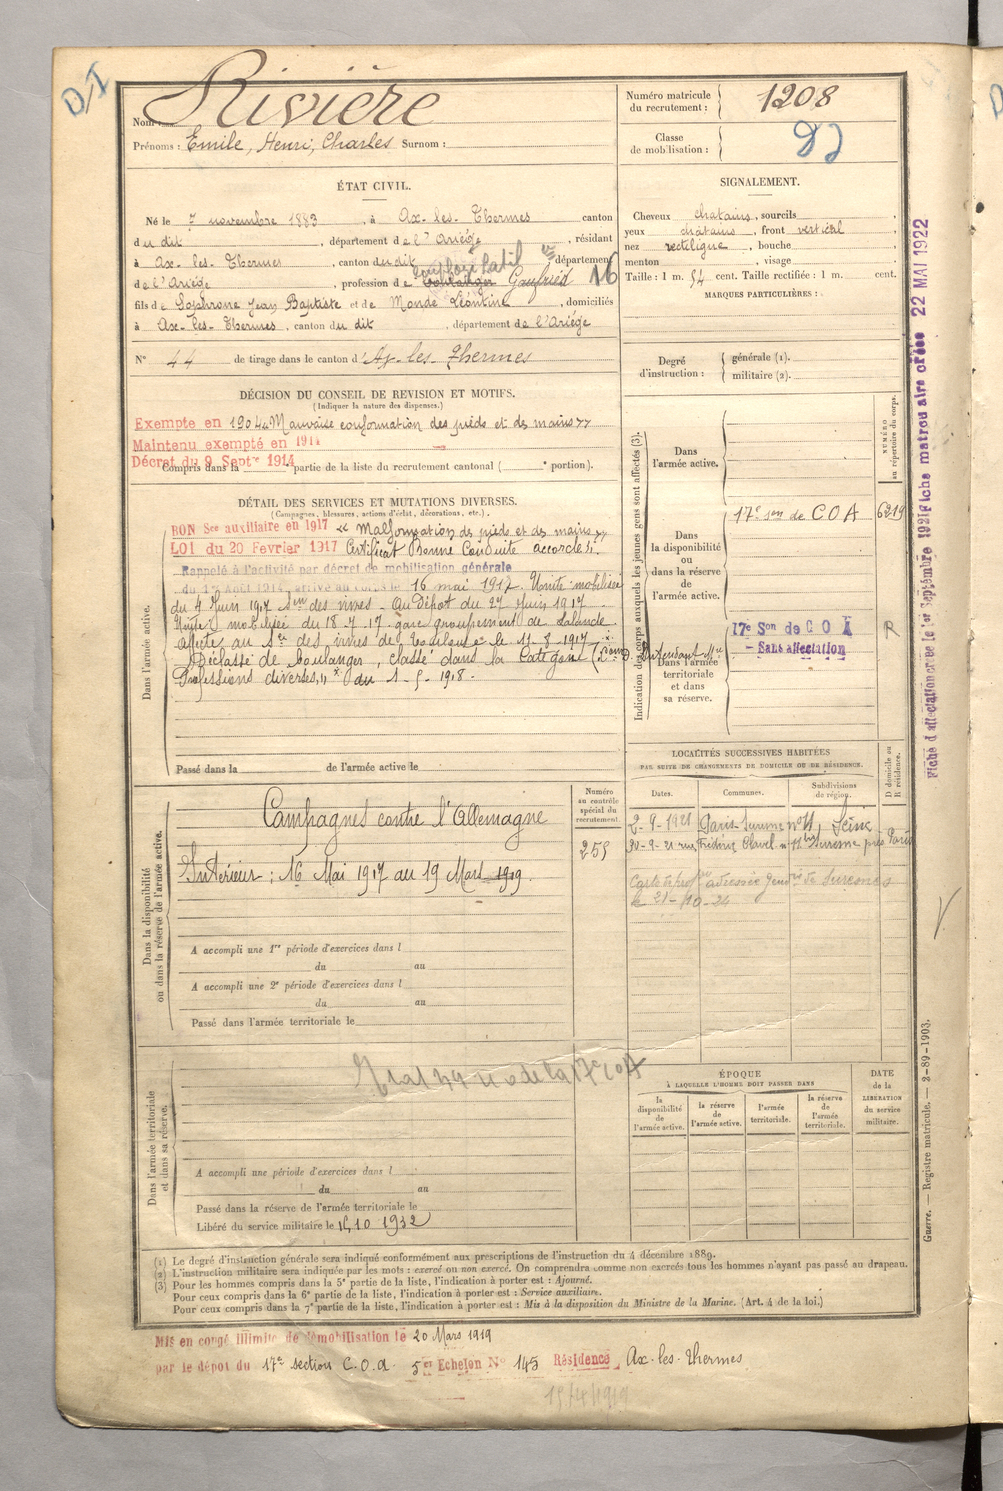 D.I
Nom: Rivière
Prénoms : Emile, Henri, Charles Surnom :
Numéro matricule du recrutement : 1208
Classe de mobilisation :
ÉTAT CIVIL.
Né le 7 novembre 1883, à Ax-les-Thermes canton
du dit, département de l'Ariège, résidant
à Ax-les-Thermes, canton du dit, département
de l'Ariège, profession de boulanger 16
fils de Sophrone Jean Baptiste et de Monde Léontine, domiciliés
à Ax-les-Thermes, canton du dit, département de l'Ariège
N° 44 de tirage dans le canton d'Ax-les-Thermes
SIGNALEMENT.
Cheveux chatains, sourcils
yeux châtains, front vertical
nez rectiligne, bouche
menton, visage
Taille : 1 m. 54 cent. Taille rectifiée : 1 m. cent.
MARQUES PARTICULIÈRES :
Degré d'instruction : générale (1).
militaire (2).
DÉCISION DU CONSEIL DE REVISION ET MOTIFS.
(Indiquer la nature des dispenses.)
Exempte en 1904 « Mauvaise conformation des pieds et des mains »
Maintenu exempté en 1914
Décret du 9 Septre 1914
Compris dans la partie de la liste du recrutement cantonal ( portion).
DÉTAIL DES SERVICES ET MUTATIONS DIVERSES.
(Campagnes, blessures, actions d'éclat, décorations, etc.)
BON Sce auxiliaire en 1917 « Malformation des pieds et des mains »
LOI du 20 Fevrier 1917 Certificat Bonne Conduite accordé.
Rappelé à l'activité par décret de mobilisation générale
du 1er Août 1914, arrivé au corps le 16 mai 1917. Unité mobilisée
du 4 Juin 1917 Son des vivres. Au Dépôt du 27 Juin 1917.
Unité mobilisée du 18-7-17 gare groupement de Lalande
Affecté au Son des vivres de Toulouse le 11-8-1917
Déclassé de boulanger, classé dans la Catégorie
Professions diverses, du 1-5-1918.
Dans l'armée active.
Passé dans la de l'armée active le
Indication des corps auxquels les jeunes gens sont affectés (3).
NUMÉRO au répertoire du corps.
Dans l'armée active.
Dans la disponibilité ou dans la réserve de l'armée active.
17e son de COA 6219
Dans l'armée territoriale et dans sa réserve.
17e Son de COA R
- Sans affectation
LOCALITÉS SUCCESSIVES HABITÉES
PAR SUITE DE CHANGEMENTS DE DOMICILE OU DE RÉSIDENCE.
Dates. Communes. Subdivisions de région. D domicile ou R résidence.
2-9-1921 Paris-Suresnes n° 11, Seine
20-9-21 rue Frédéric Clavel n° 11 bis Suresnes près Paris
Carte de adressée Gendrie de Suresnes
le 21-10-24
Dans la disponibilité ou dans la réserve de l'armée active.
Numéro au contrôle spécial du recrutement.
Campagnes contre l'Allemagne
259
Intérieur : 16 Mai 1917 au 19 Mars 1919.
A accompli une 1re période d'exercices dans l
du au
A accompli une 2e période d'exercices dans l
du au
Passé dans l'armée territoriale le
Dans l'armée territoriale et dans sa réserve.
de la 17e COA
A accompli une période d'exercices dans l
du au
Passé dans la réserve de l'armée territoriale le
Libéré du service militaire le 15 10 1932
ÉPOQUE
À LAQUELLE L'HOMME DOIT PASSER DANS
la disponibilité de l'armée active.
la réserve de l'armée active.
l'armée territoriale.
la réserve de l'armée territoriale.
DATE de la LIBÉRATION du service militaire.
(1) Le degré d'instruction générale sera indiqué conformément aux prescriptions de l'instruction du 4 décembre 1889.
(2) L'instruction militaire sera indiquée par les mots : exercé ou non exercé. On comprendra comme non exercés tous les hommes n'ayant pas passé au drapeau.
(3) Pour les hommes compris dans la 5e partie de la liste, l'indication à porter est : Ajourné.
Pour ceux compris dans la 6e partie de la liste, l'indication à porter est : Service auxiliaire.
Pour ceux compris dans la 7e partie de la liste, l'indication à porter est : Mis à la disposition du Ministre de la Marine. (Art. 4 de la loi.)
Mis en congé illimité de démobilisation le 20 Mars 1919
par le dépôt du 17e section C.O.A. 5e Echelon N° 145 Résidence Ax-les-Thermes
15/4/1919
Fiche d'affectation créée le 1er Septembre 1921 Fiche matriculaire créée 22 MAI 1922
Guerre. — Registre matricule. — 2-89-1903.